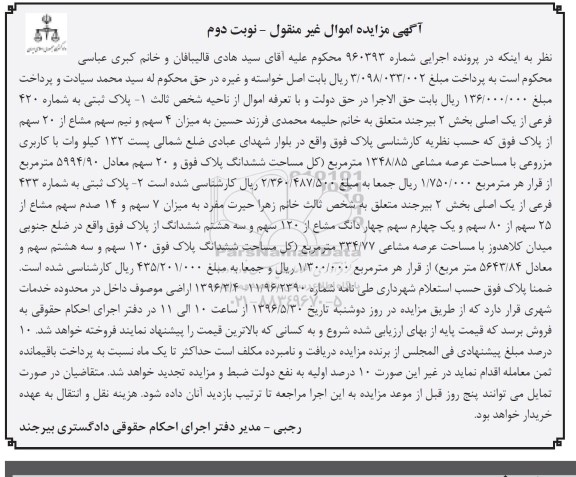 آگهی مزایده اموال غیر منقول - نوبت دوم
نظر به اینکه در پرونده اجرایی شماره ۹۶۰۳۹۳ محکوم علیه آقای سید هادی قالیبافان و خانم کبری عباسی
محکوم است به پرداخت مبلغ ۳/۰۹۸/۰۳۳/۰۰۲ ریال بابت اصل خواسته و غیره در حق محکوم له سید محمد سیادت و پرداخت
مبلغ ۱۳۶/۰۰۰/۰۰۰ ریال بابت حق الاجرا در حق دولت و با تعرفه اموال از ناحیه شخص ثالث ۱- پلاک ثبتی به شماره ۴۲۰
فرعی از یک اصلی بخش ۲ بیرجند متعلق به خانم حلیمه محمدی فرزند حسین به میزان ۴ سهم و نیم سهم مشاع از ۲۰ سهم
از پلاک فوق که حسب نظریه کارشناسی پلاک فوق واقع در بلوار شهدای عبادی ضلع شمالی پست ۱۳۲ کیلو وات با کاربری
مزروعی با مساحت عرصه مشاعی ۱۳۴۸/۸۵ مترمربع (کل مساحت ششدانگ پلاک فوق و ۲۰ سهم معادل ۵۹۹۴/۹۰ مترمربع
از قرار هر مترمربع ۱/۷۵۰/۰۰۰ ریال جمعا به مبلغ ۲/۳۶۰/۴۸۷/۵۰۰ ریال کارشناسی شده است ۲- پلاک ثبتی به شماره ۴۳۳
فرعی از یک اصلی بخش ۲ بیرجند متعلق به شخص ثالث خانم زهرا حیرت مفرد به میزان ۷ سهم و ۱۴ صدم سهم مشاع از
۲۵ سهم از ۸۰ سهم و یک چهارم سهم چهار دانگ مشاع از ۱۲۰ سهم و سه هشتم ششدانگ از پلاک فوق واقع در ضلع جنوبی
میدان کلاهدوز با مساحت عرصه مشاعی ۳۳۴/۷۷ مترمربع (کل مساحت ششدانگ پلاک فوق ۱۲۰ سهم و سه هشتم سهم و
معادل ۵۶۴۳/۸۴ متر مربع) از قرار هر مترمربع ۱/۳۰۰/۰۰۰ ریال و جمعا به مبلغ ۴۳۵/۲۰۱/۰۰۰ ریال کارشناسی شده است.
ضمنا پلاک فوق حسب استعلام شهرداری طی نامه شماره ۱۱/۹۶/۲۳۹۰-۱۳۹۶/۳/۴ اراضی موصوف داخل در محدوده خدمات
شهری قرار دارد که از طریق مزایده در روز دوشنبه تاریخ ۱۳۹۶/۵/۳۰ از ساعت ۱۰ الی ۱۱ در دفتر اجرای احکام حقوقی به
فروش برسد که قیمت پایه از بهای ارزیابی شده شروع و به کسانی که بالاترین قیمت را پیشنهاد نمایند فروخته خواهد شد. ۱۰
درصد مبلغ پیشنهادی فی المجلس از برنده مزایده دریافت و نامبرده مکلف است حداکثر تا یک ماه نسبت به پرداخت باقیمانده
ثمن معامله اقدام نماید در غیر این صورت ۱۰ درصد اولیه به نفع دولت ضبط و مزایده تجدید خواهد شد. متقاضیان در صورت
تمایل می توانند پنج روز قبل از موعد مزایده به این اجرا مراجعه تا ترتیب بازدید آنان داده شود. هزینه نقل و انتقال به عهده
خریدار خواهد بود.
رجبی - مدیر دفتر اجرای احکام حقوقی دادگستری بیرجند
ParsNamadData
۰۲۱-۸۸۳۴۹۶۷۰-۵